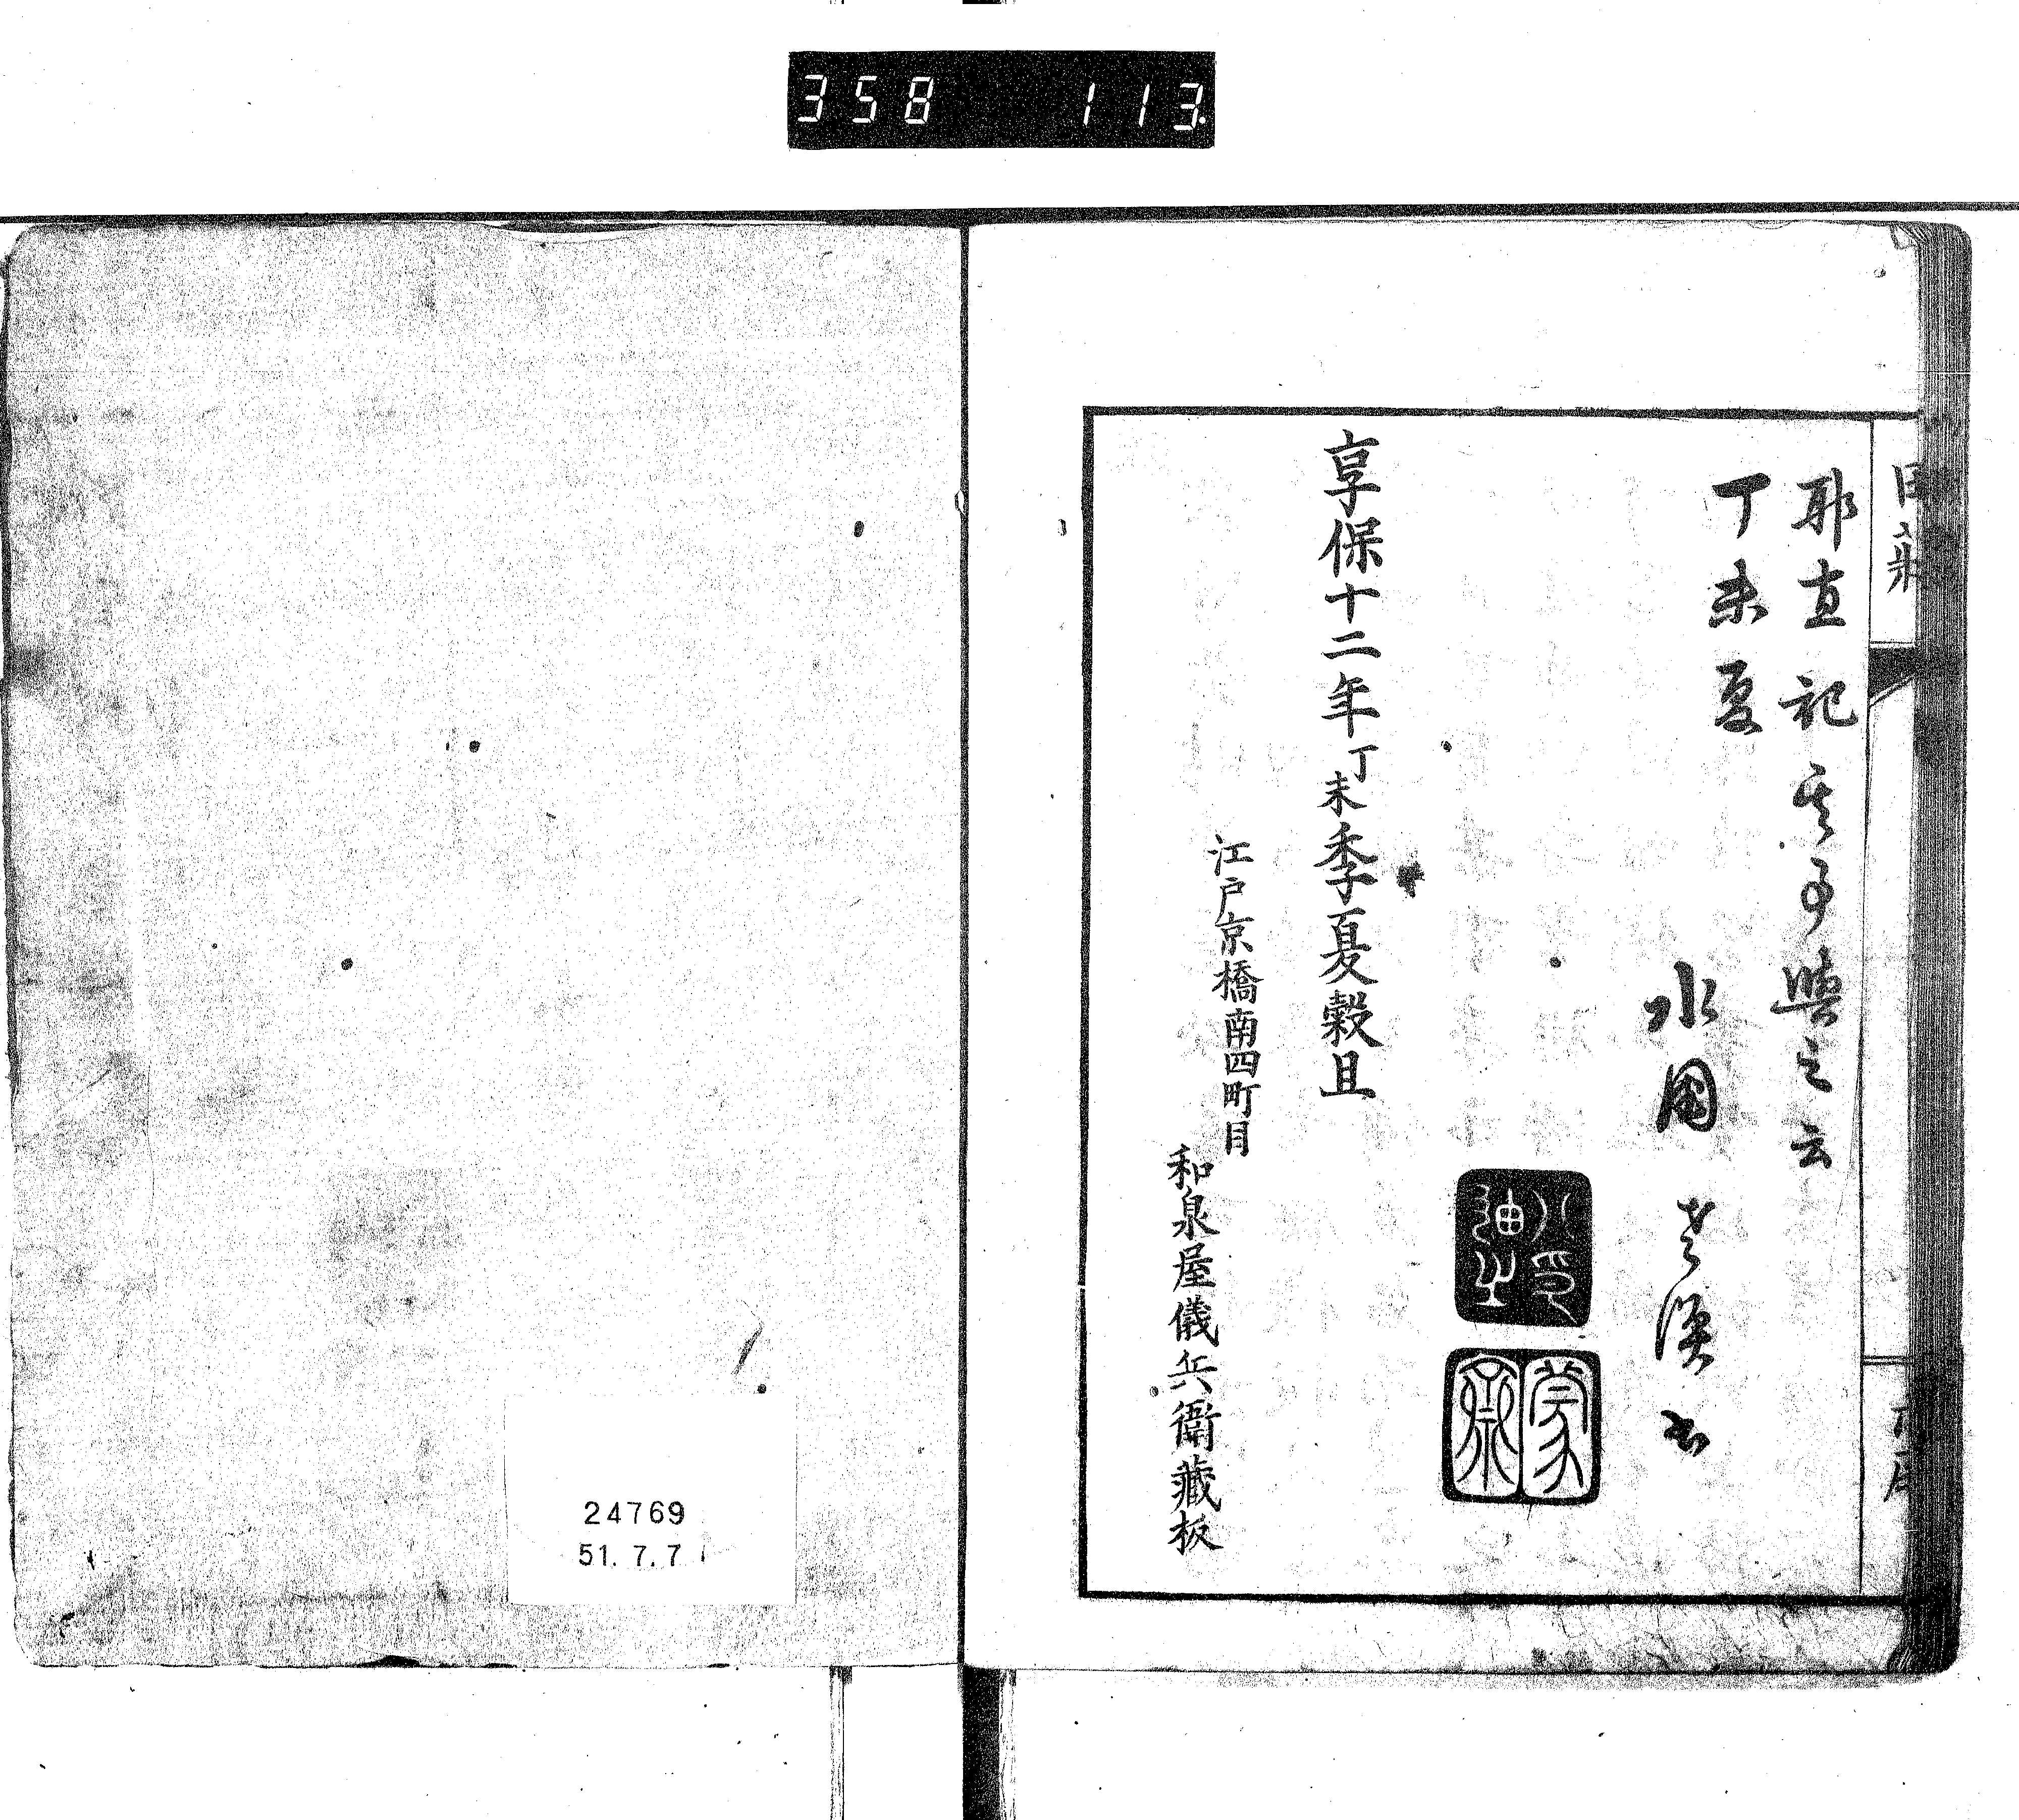 358 113
田舎
耶直記其事與之云
丁未夏
水国老漁書
享保十二年丁未季夏穀旦
江戸京橋南四町目
和泉屋儀兵衛藏板
24769
51.7.7